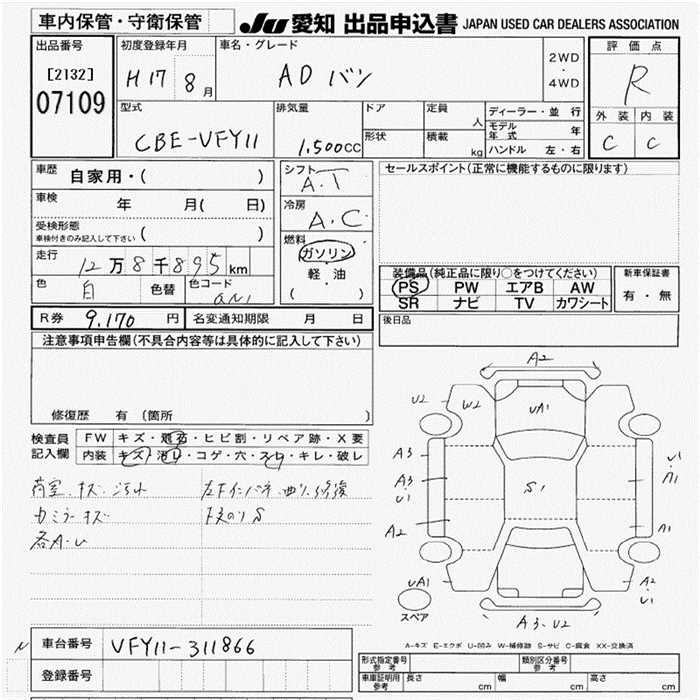 車内保管・守衛保管
JU 愛知 出品申込書 JAPAN USED CAR DEALERS ASSOCIATION
出品番号
[2132]
07109
初度登録年月
H17 8月
車名・グレード
ADバン
2WD
・
4WD
評価点
R
外装 内装
C C
型式
CBE-VFY11
排気量
1,500CC
ドア
形状
定員
人
積載
kg
ディーラー・並行
モデル年式 年
ハンドル 左・右
車歴
自家用・( )
車検 年 月( 日)
受検形態
車検付きのみ記入して下さい ( )
走行 12万8千895km
色 白 色替 色コード
シフト
A.T
冷房
A.C
燃料
ガソリン
軽・油
( )
セールスポイント(正常に機能するものに限ります)
装備品(純正品に限り○をつけてください)
PS PW エアB AW
SR ナビ TV カワシート
新車保証書
有・無
R券 9,170円 名変通知期限 月 日
後日品
注意事項申告欄(不具合内容等は具体的に記入して下さい)
修復歴 有(箇所 )
検査員記入欄
FW キズ・飛石・ヒビ割・リペア跡・X要
内装 キズ・汚レ・コゲ・穴・スレ・キレ・破レ
荷室 キズ・汚れ
各A・U
A2
U2
W2
UA1
A3
A3
U1
S1
U1
A1
A2
A1
UA1
A2
U1
スペア
A3・U2
A-キズ E-エクボ U-凹み W-補修跡 S-サビ C-腐食 XX-交換済
車台番号 VFY11-311866
登録番号
型式指定番号 参考
類別区分番号 参考
車庫証明用 参考 長さ cm 幅 cm 高さ cm